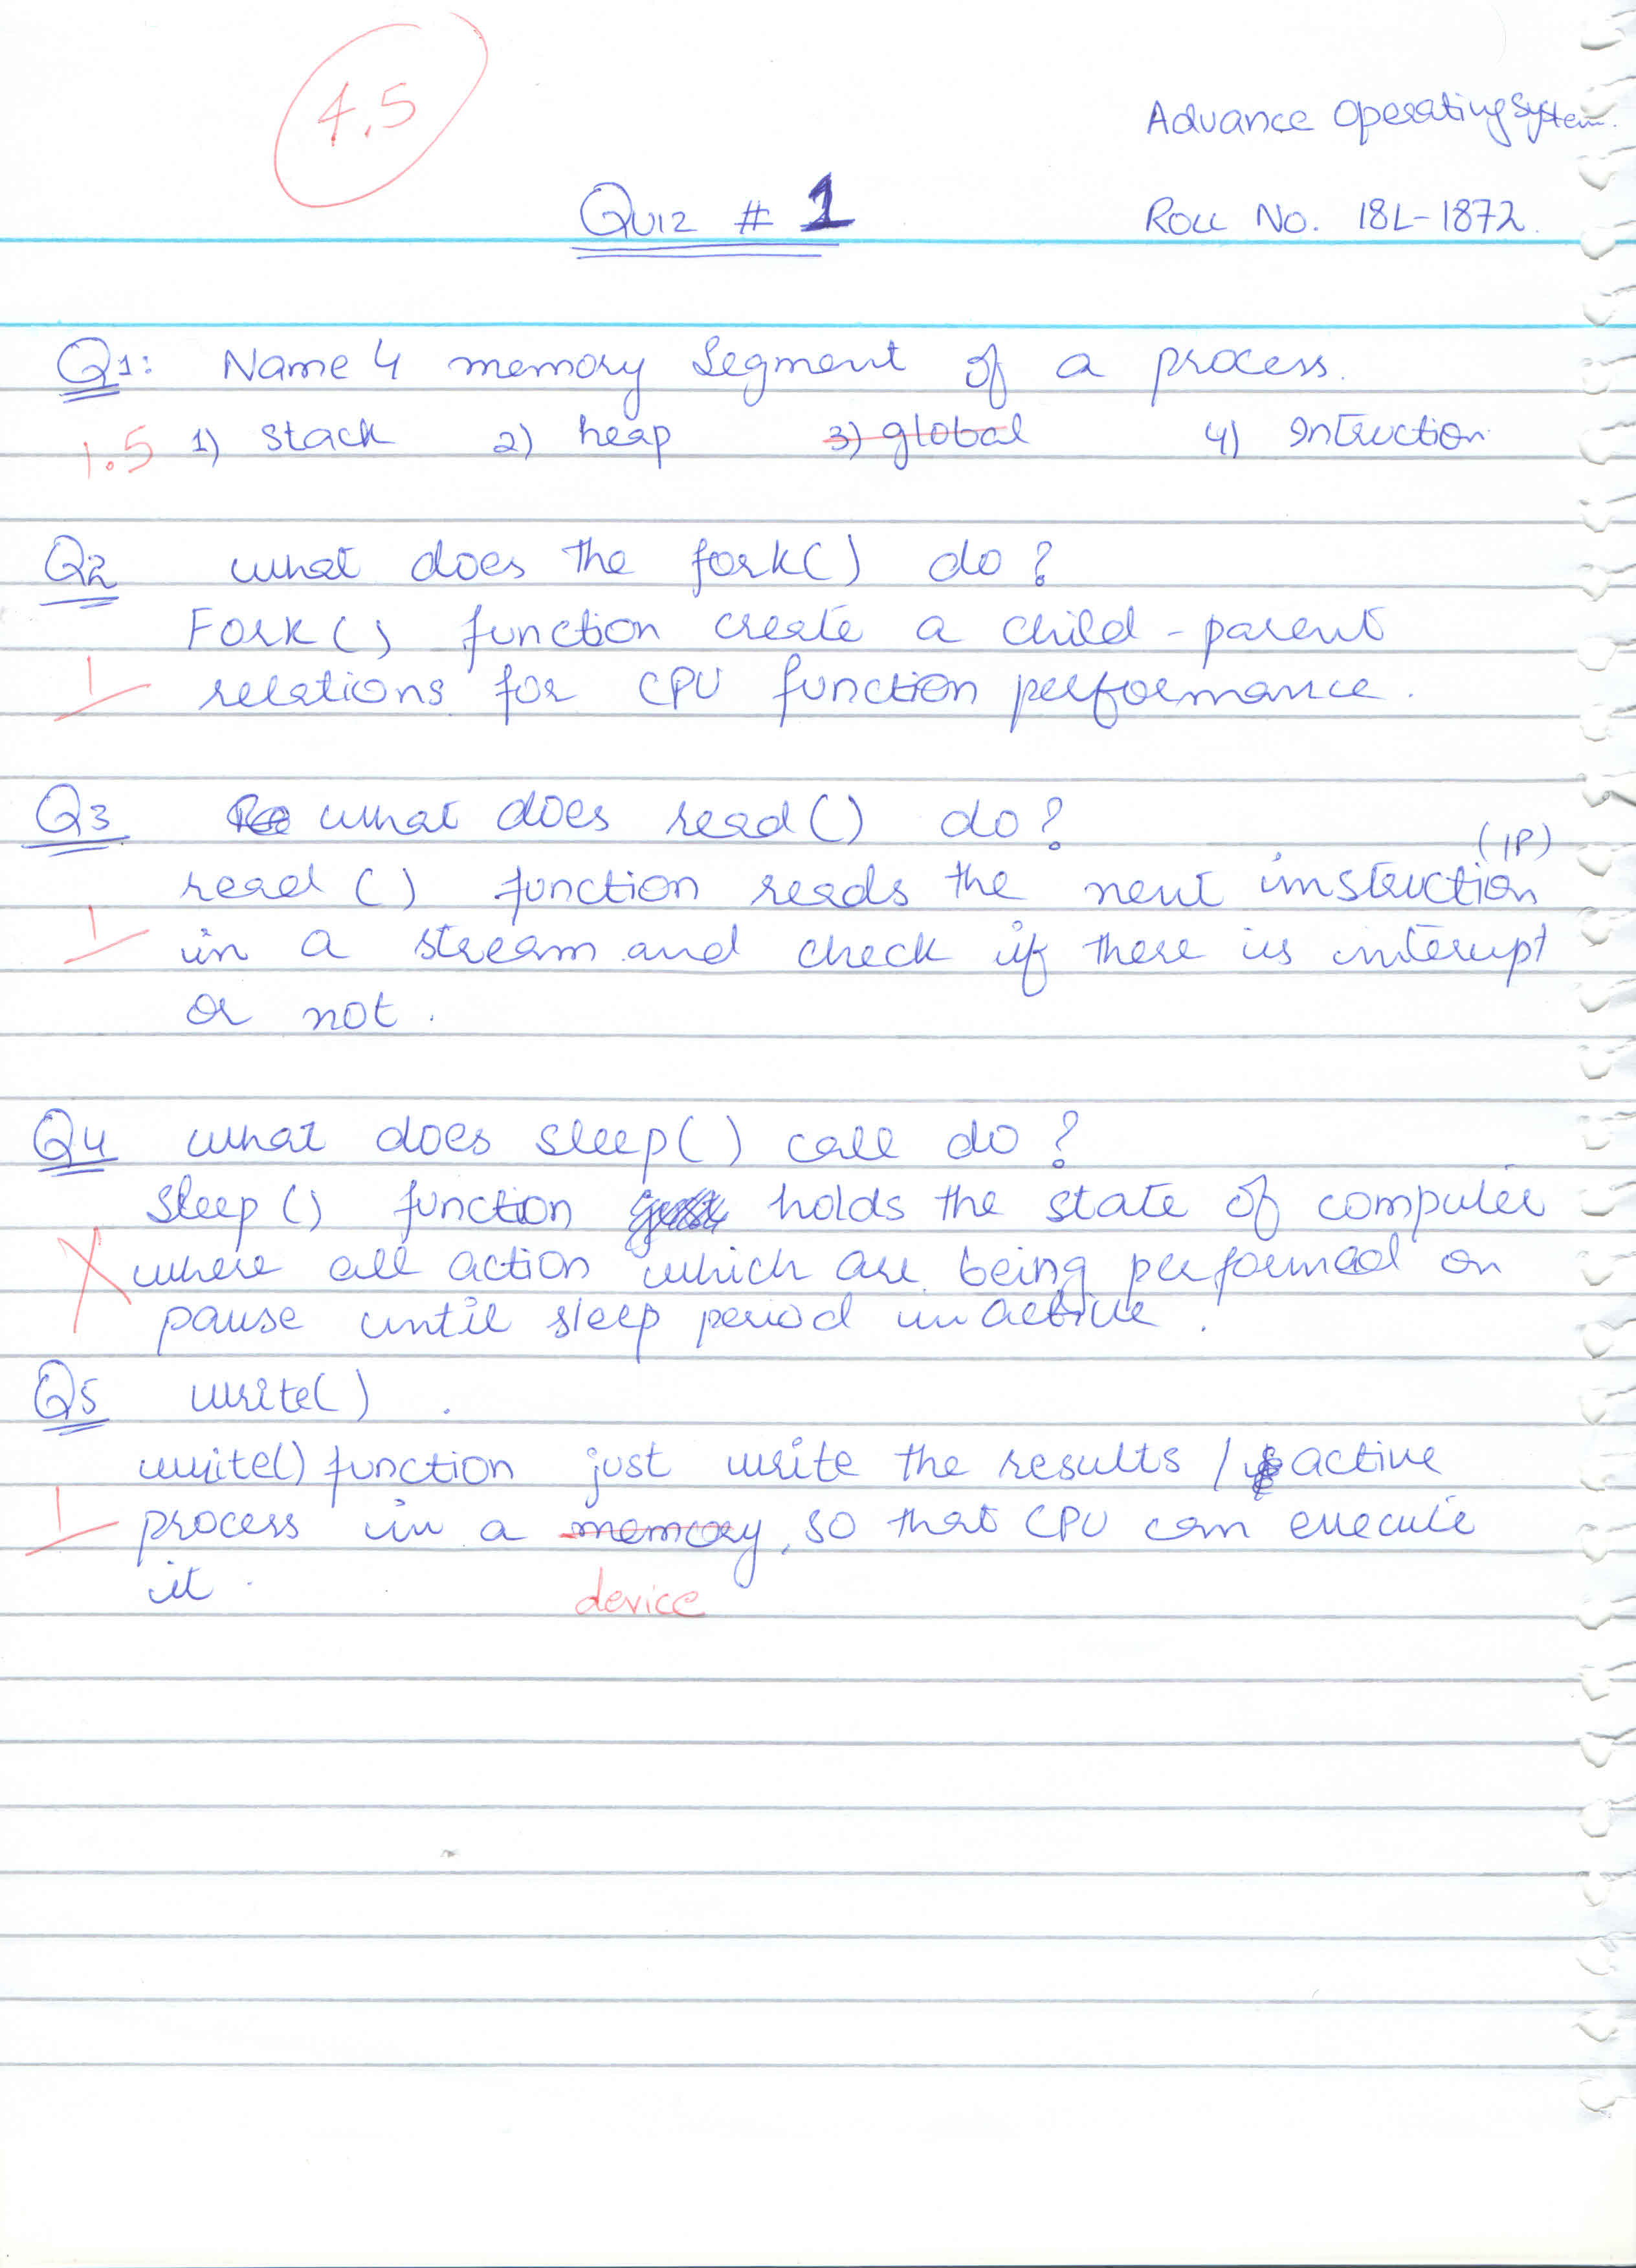 4.5
Advance Operating System.
Quiz # 1
Roll No. 18L-1872.
Q1: Name 4 memory Segment of a process.
1.5 1) stack 2) heap 3) global 4) Intruction
Q2 what does the fork() do?
Fork() function create a child-parent
1 relations for CPU function performance.
Q3 what does read() do?
(IP)
read () function reads the next imstruction
1 in a stream and check if there is interupt
or not.
Q4 what does sleep() call do?
Sleep() function holds the state of computer
X where all action which are being performed on
pause until sleep period in active.
Q5 write().
write() function just write the results / active
1 process in a memory, so that CPU can execute
it.
device